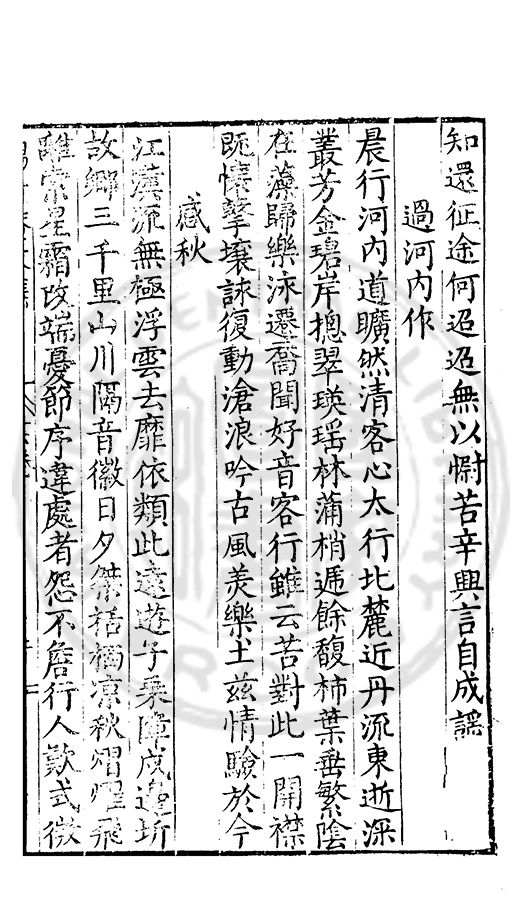 知還征途何迢迢無以慰苦辛興言自成謡
過河內作
晨行河內道曠然清客心太行北麓近丹流東逝深
叢芳金碧岸摠翠瑛瑶林蒲梢逓餘馥柿葉垂繁陰
在藻歸樂泳遷喬聞好音客行雖云苦對此一開襟
既懐擊壤詠復動滄浪吟古風羨樂土兹情驗於今
感秋
江漢流無極浮雲去靡依類此遠遊子乘障戍邊圻
故鄉三千里山川隔音徽日夕桀栖栖凉秋熠燿飛
離索星霜改端憂節序違處者怨不詹行人歎式微